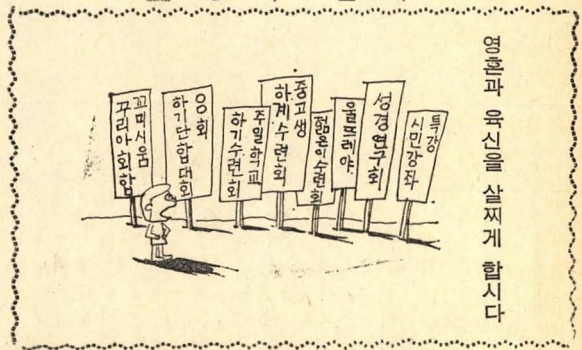 영혼과 육신을 살찌게 합시다
특강
시민강좌
성경연구회
울뜨레야
젊은이수련회
중고생
하계수련회
주일학교
하기수련회
ㅇㅇ회
하기단합대회
꼬미시움
꾸리아회합